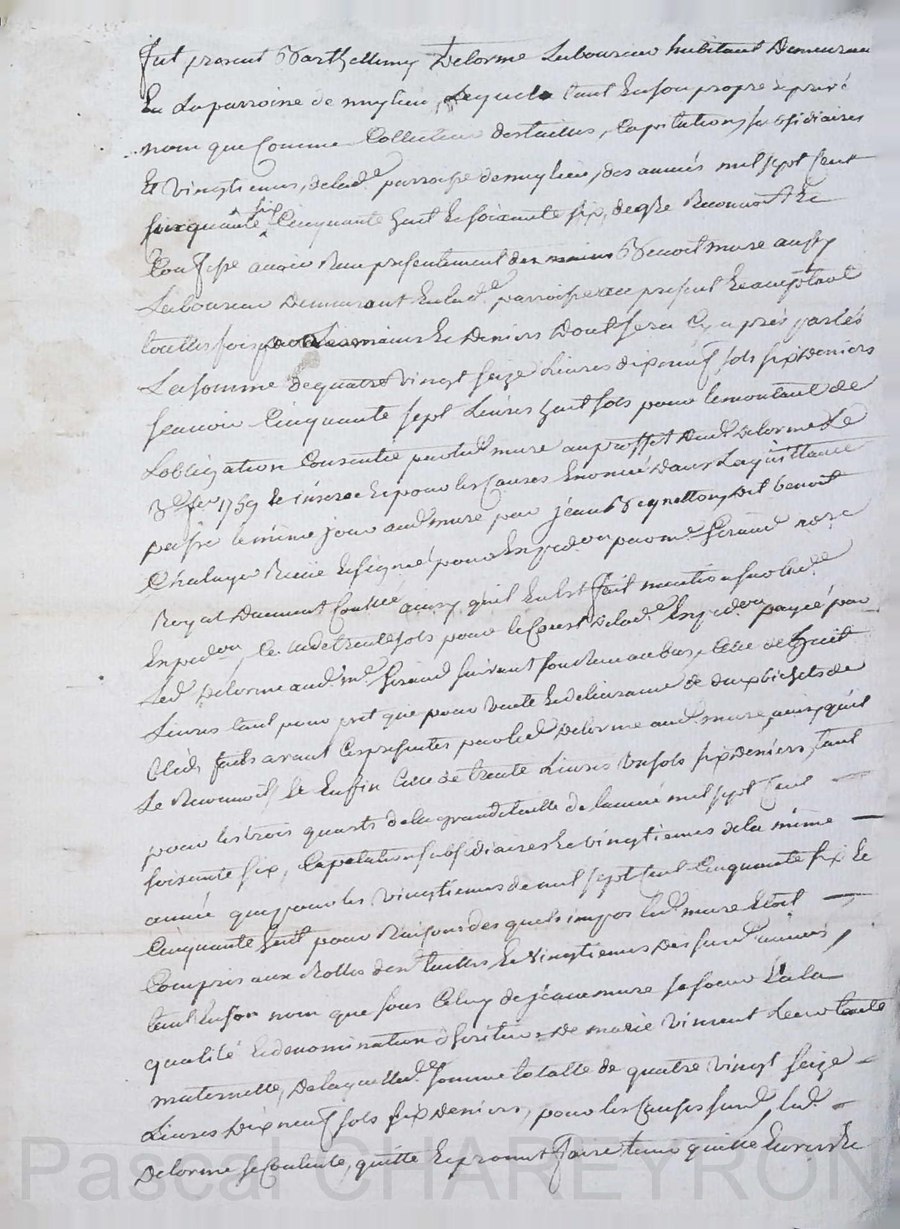 fut present Barthellemy Delorme Laboureur habitant Demeurant
En La parroisse de mylieu, Lequel tant En son propre et privé
nom que Comme Collecteur des tailles, Capitations subsidiaires
Et vingtiemes, de lad.e parroisse de mylieu, des années mil sept Cent
Cinquante six Cinquante huit Et soixante six, de gre Reconnoit Et
Confesse avoir Reçu presentement des mains Benoit mure aussy
Laboureur Demeurant En lad.e parroisse present Et acceptant
touttes fois Les mains Et Deniers Dont sera Cy après parlés
La somme de quatre vingt seize Livres dix neuf sols six Deniers
scavoir Cinquante sept Livres huit sols pour le montant de
Lobligation Consentie par led. mure au proffit dud. Delorme Le
3.e 1759 Et pour les Causes Enoncé Dans La quittance
passée le même jour aud. mure par jean dit benoit
Chalaye Reçue Et signée pour Expedon par m.e Giraud no.re
Royal Duement Controllé aussy qu'il En Est fait mention sur lad.e
Expedon, Celle de trente sols pour le Coust De lad.e Expedon payée par
Led. Delorme aud. m.e Giraud suivant son Reçu au bas, Celle de huit
Livres tant pour prêt que pour vente Et delivrance de deux bichets de
bled, faits avant Ces presentes par led. Delorme aud. mure, ainsy qu'il
Le Reconnoit, Et Enfin Celle de trente Livres un sols six deniers, tant
pour les trois quarts de la grande taille de l'année mil sept Cent
soixante six, Capitation subsidiaires Et vingtiemes de la même
année que pour les vingtiemes de mil sept Cent Cinquante six Et
Cinquante huit pour Raisons des quels impos led. mure Etoit
Compris aux Rolles des tailles Et vingtiemes Des susd. années,
tant En son nom que sous Celuy de jeanne mure sa soeur En la
qualité Et denomination d'heritiers De marie vincent Leur tante
maternelle, De laquelle somme totalle de quatre vingt seize
Livres Dix neuf sols six Deniers, pour les Causes susd. led.
Delorme se Contente, quitte Et promet faire tenir quitte Envers Et
Pascal CHAREYRON